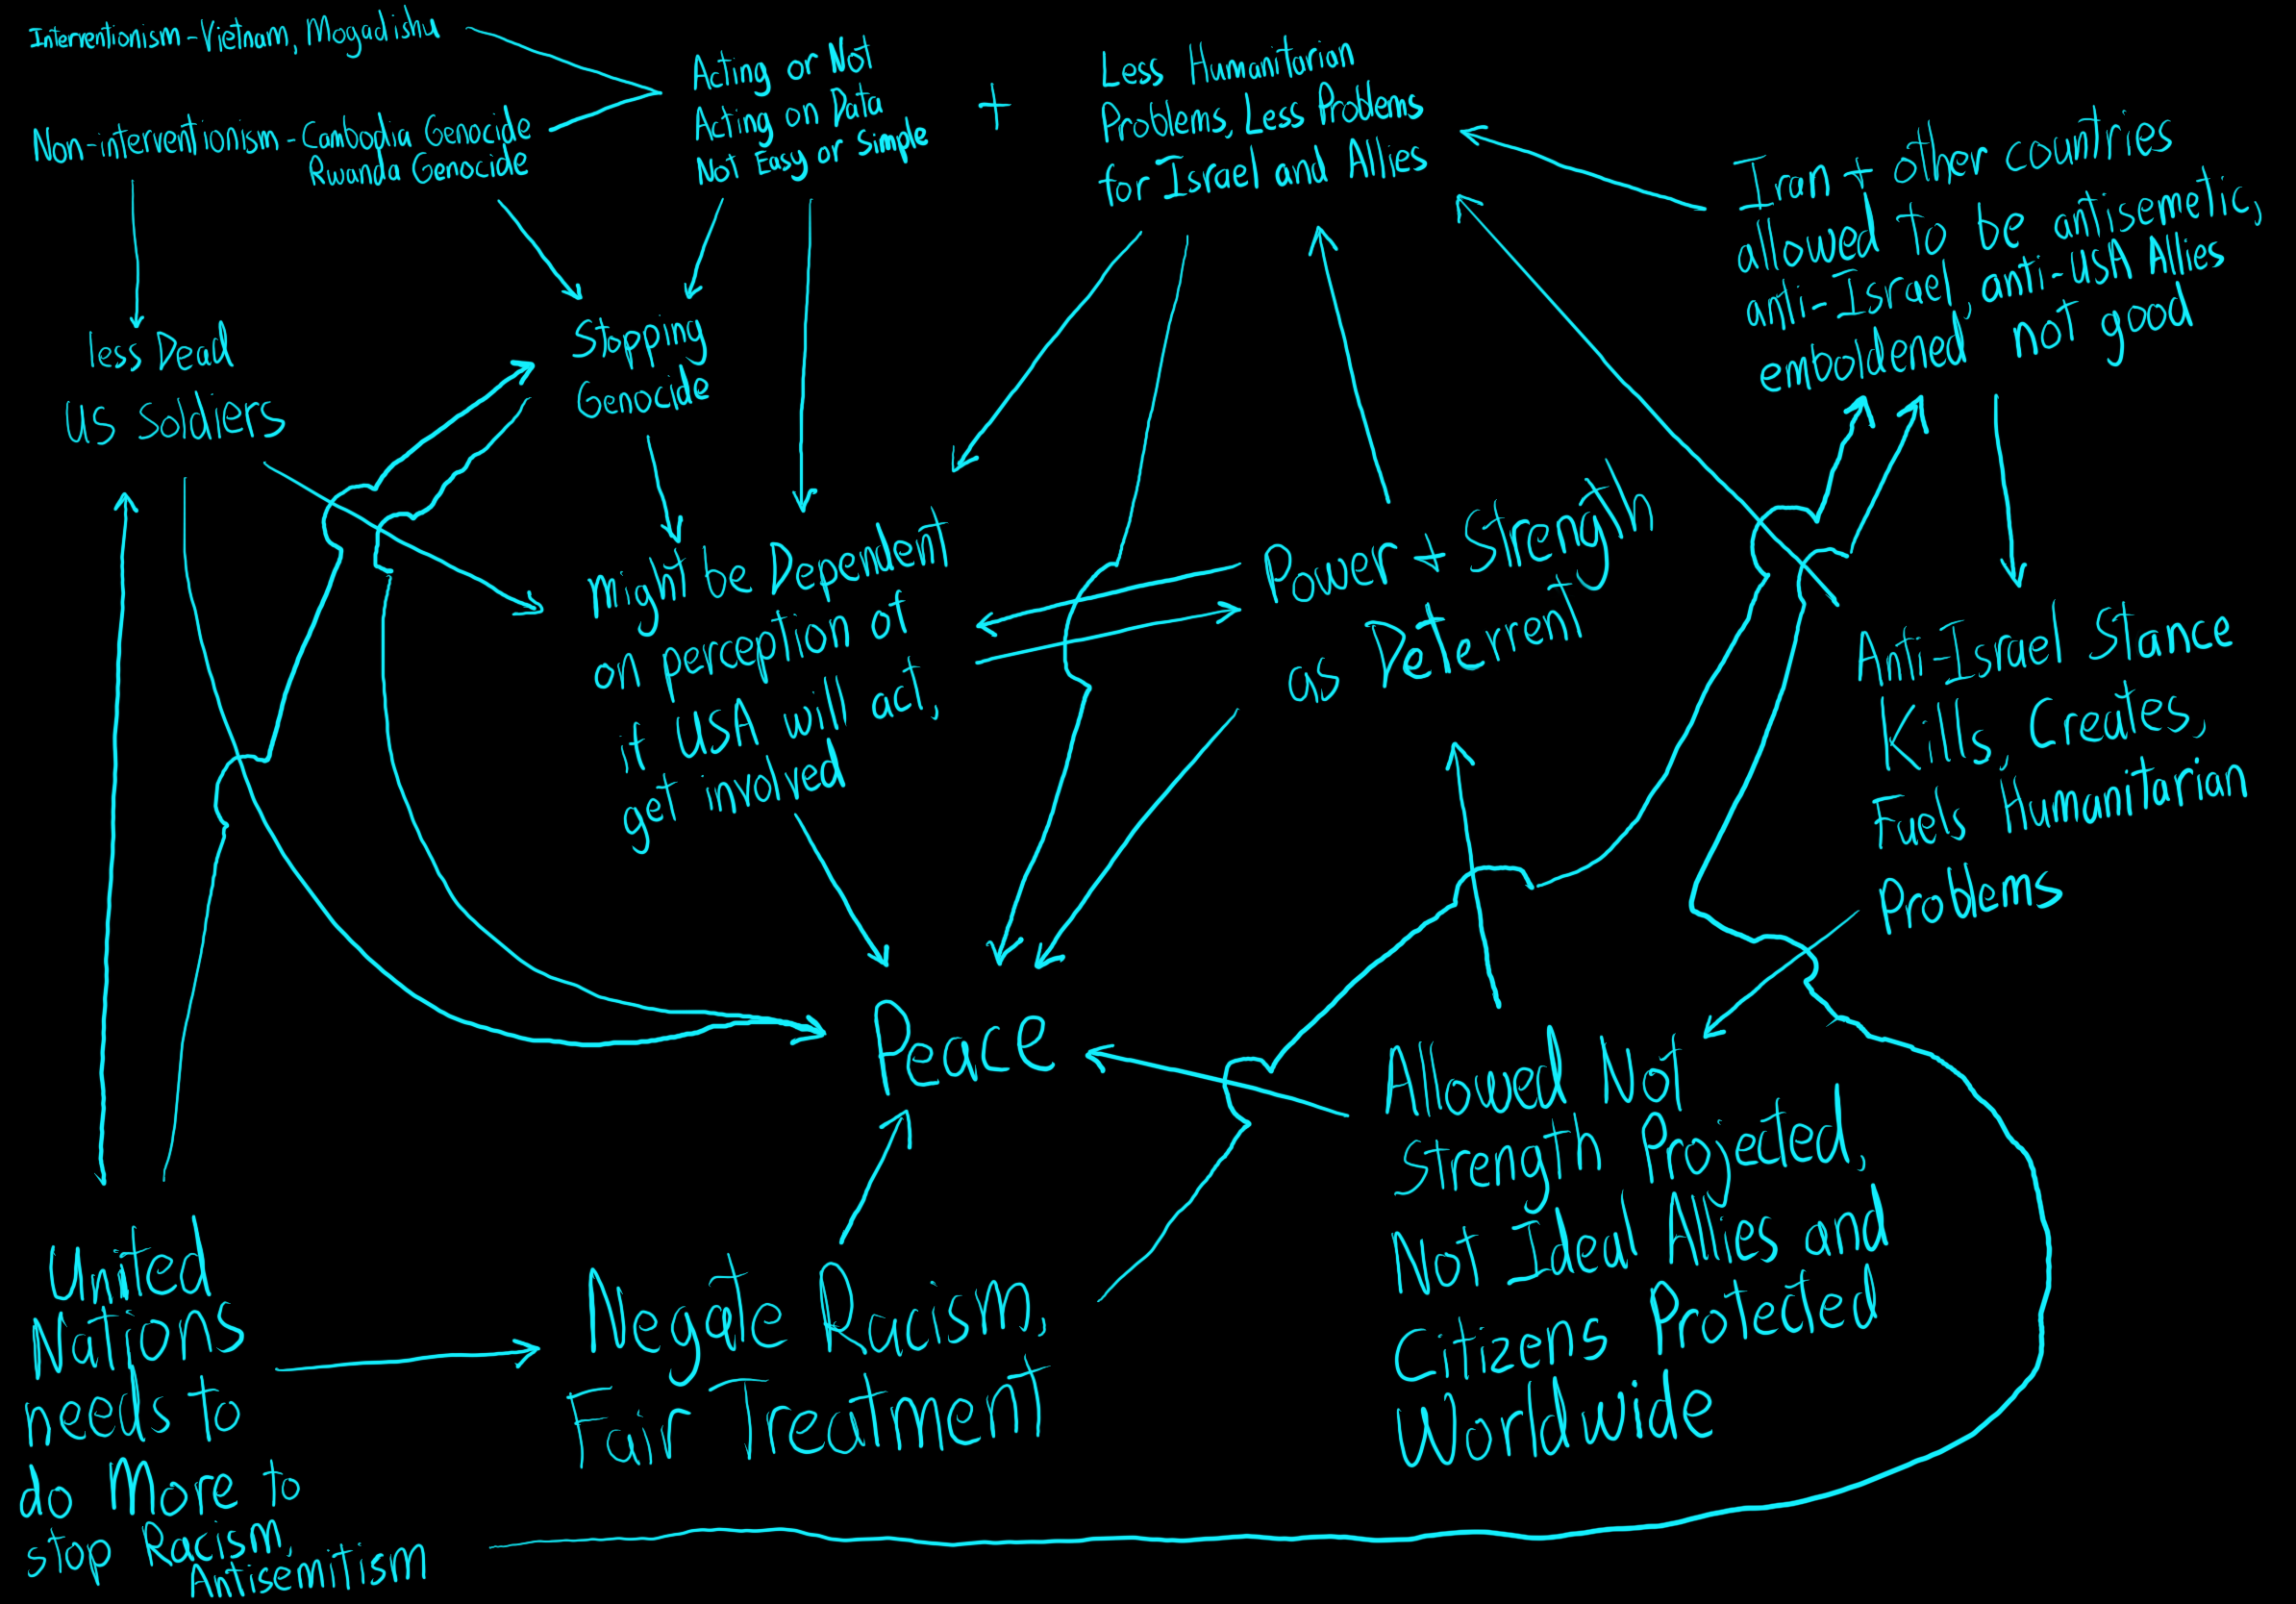 Interventionism - Vietnam, Mogadishu
Non-interventionism - Cambodia Genocide
Rwanda Genocide
Acting or Not
Acting on Data
Not Easy or Simple
+
Less Humanitarian
Problems, Less Problems
for Israel and Allies
Iran + other countries
allowed to be antisemetic,
anti-Israel, anti-USA Allies
emboldened not good
less Dead
US Soldiers
Stopping
Genocide
might be Dependent
on perception of
if USA will act,
get involved
Power + Strength
as Deterrent
Anti-Israel Stance
Kills, Creates,
Fuels Humanitarian
Problems
Peace
Allowed Not
Strength Projected,
Not Ideal Allies and
Citizens Protected
Worldwide
United
Nations
needs to
do More to
stop Racism,
Antisemitism
Negate Racism,
Fair Treatment